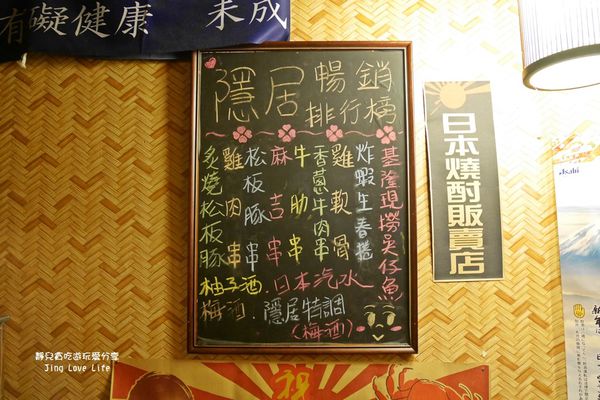 有礙健康 未成
隱居 暢銷排行榜
基隆現撈吳仔魚
炸蝦生春捲
雞軟骨
香蔥牛肉串
牛肋串
麻吉串
松板豚串
雞肉串
炙燒松板豚
柚子酒. 日本汽水
梅酒. 隱居特調
(梅酒)
日本燒酎販賣店
Asahi
祝
靜兒貪吃遊玩愛分享
Jing Love Life